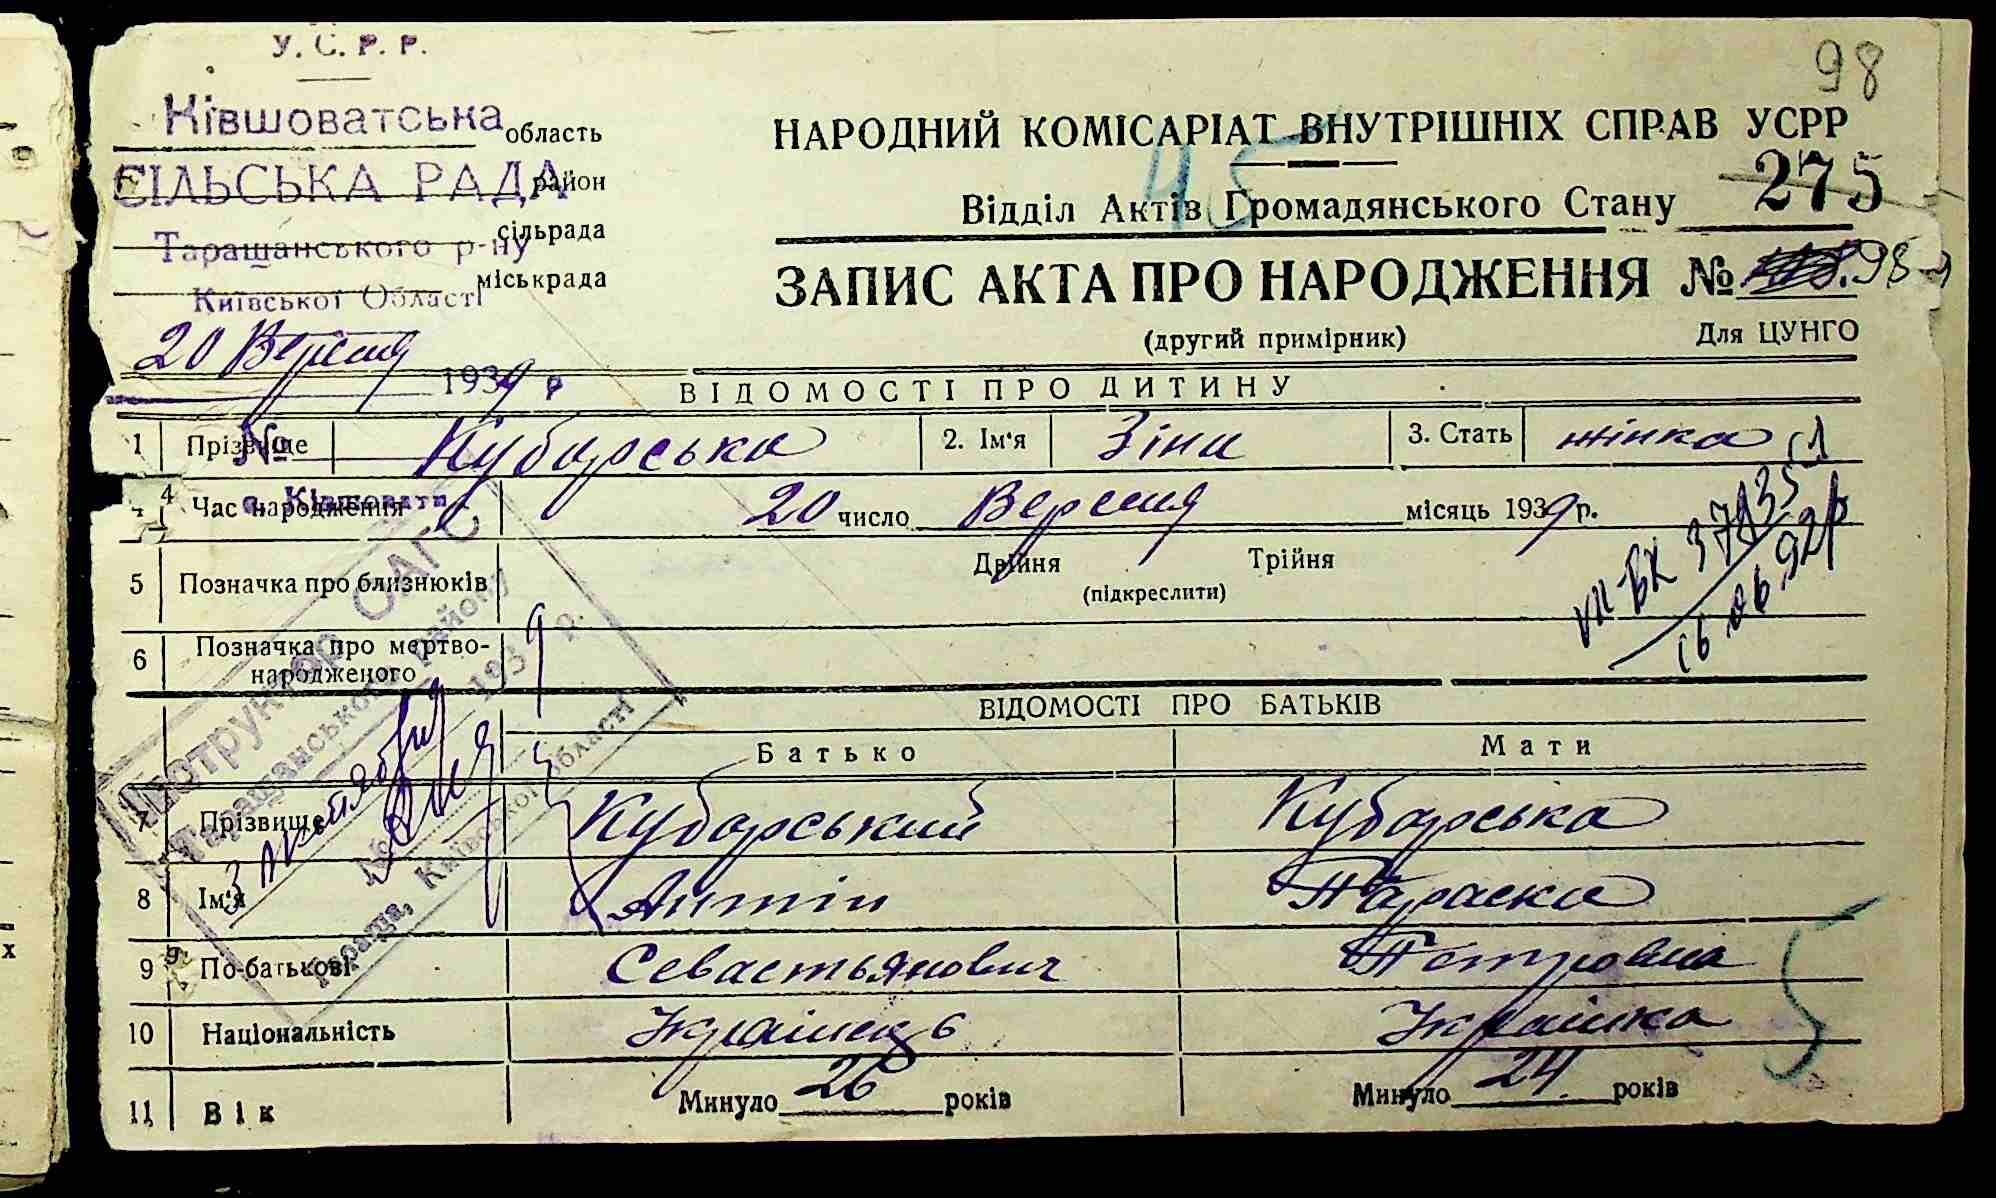 98
У. С. Р. Р.
Ківшоватська область
СІЛЬСЬКА РАДА район
сільрада
Таращанського р-ну
міськрада
Київської Області
20 Вересня 1939 р
№
с. Ківшовати
НАРОДНИЙ КОМІСАРІАТ ВНУТРІШНІХ СПРАВ УСРР
45
Відділ Актів Громадянського Стану 275
ЗАПИС АКТА ПРО НАРОДЖЕННЯ № 98
(другий примірник) Для ЦУНГО
ВІДОМОСТІ ПРО ДИТИНУ
1 Прізвище Кубарська 2. Ім'я Зіна 3. Стать жінка
4 Час народження 20 число Вересня місяць 1939 р.
5 Позначка про близнюків Двійня Трійня
(підкреслити)
VII-БК 3713
16.06.92р
6 Позначка про мертво-
народженого
ВІДОМОСТІ ПРО БАТЬКІВ
Батько Мати
7 Прізвище Кубарський Кубарська
8 Ім'я Антін Параска
9 По-батькові Севастьянович Петровна
10 Національність Українець Українка
11 Вік Минуло 26 років Минуло 24 років
Інструктор ОАГС
Таращанського району
193 9 р.
№
Тараща, Київської області
5